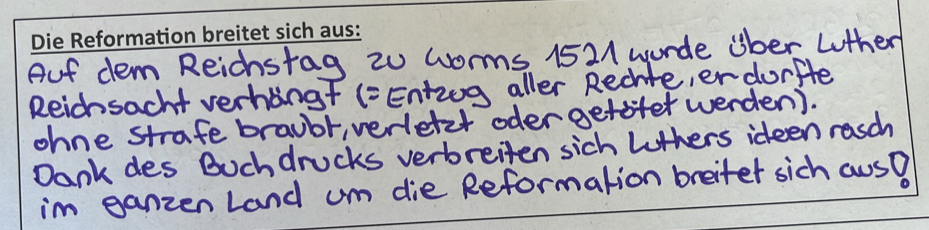 Die Reformation breitet sich aus:
Auf dem Reichstag zu Worms 1521 wurde über Luther
Reichsacht verhängt (= Entzug aller Rechte, er durfte
ohne Strafe braubt, verletzt oder getötet werden).
Dank des Buchdrucks verbreiten sich Luthers ideen rasch
im ganzen Land um die Reformation breitet sich aus!